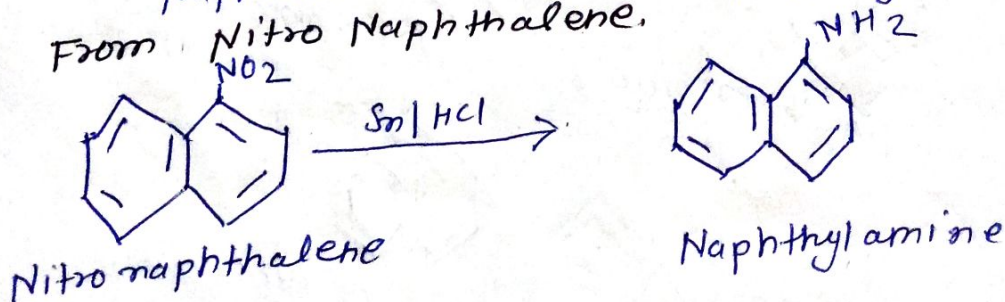 From Nitro Naphthalene.
NO2
NH2
Sn | HCl
Nitro naphthalene
Naphthyl amine